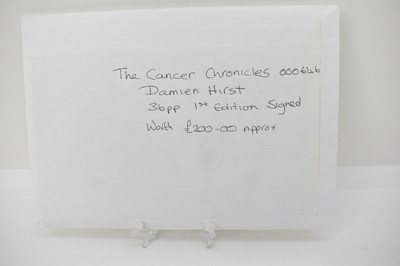 The Cancer Chronicles 000646
Damien Hirst
36pp 1st Edition Signed
Worth £200-00 approx